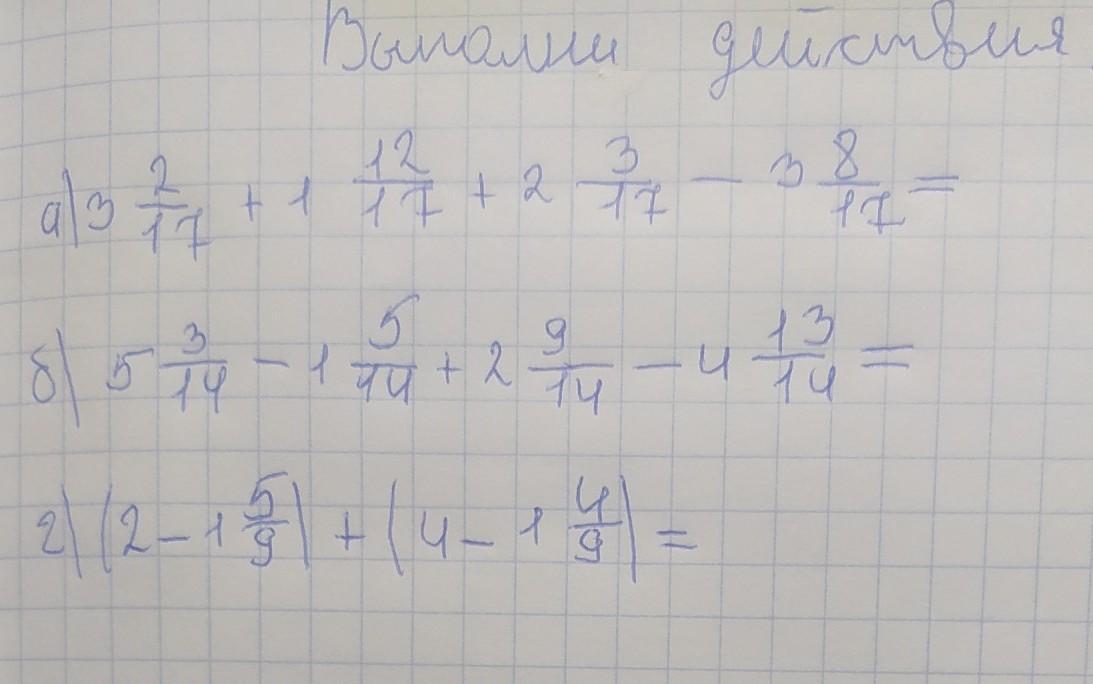 Выполни действия
а) 3 2/17 + 1 12/17 + 2 3/17 − 3 8/17 =
б) 5 3/14 − 1 5/14 + 2 9/14 − 4 13/14 =
г) (2 − 1 5/9) + (4 − 1 4/9) =